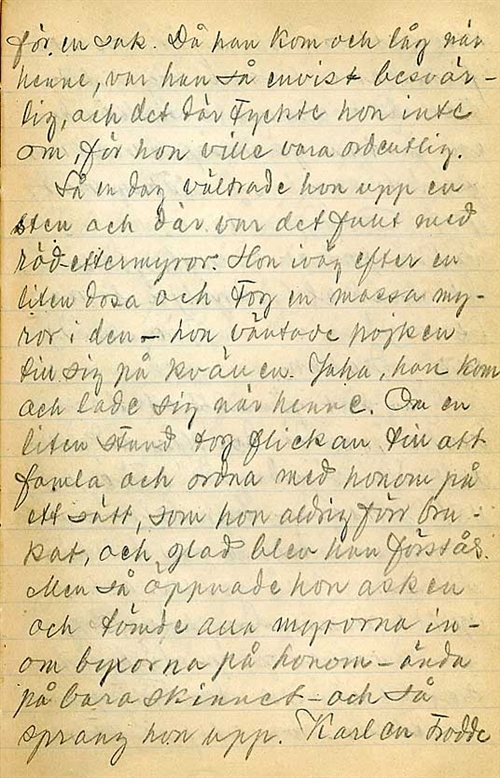 för en sak. Då han kom och låg när
henne, var han så envist besvär-
lig, och det där tyckte hon inte
om, för hon ville vara ordentlig.
Så en dag vältrade hon upp en
sten och där var det fullt med
röd-ettermyror. Hon iväg efter en
liten dosa och tog en massa my-
ror i den – hon väntade pojken
till sig på kvällen. Jaha, han kom
och lade sig när henne. Om en
liten stund tog flickan till att
famla och ordna med honom på
ett sätt, som hon aldrig förr bru-
kat, och glad blev han förstås.
Men så öppnade hon asken
och tömde alla myrorna in-
om byxorna på honom – ända
på bara skinnet – och så
sprang hon upp. Karlen trodde